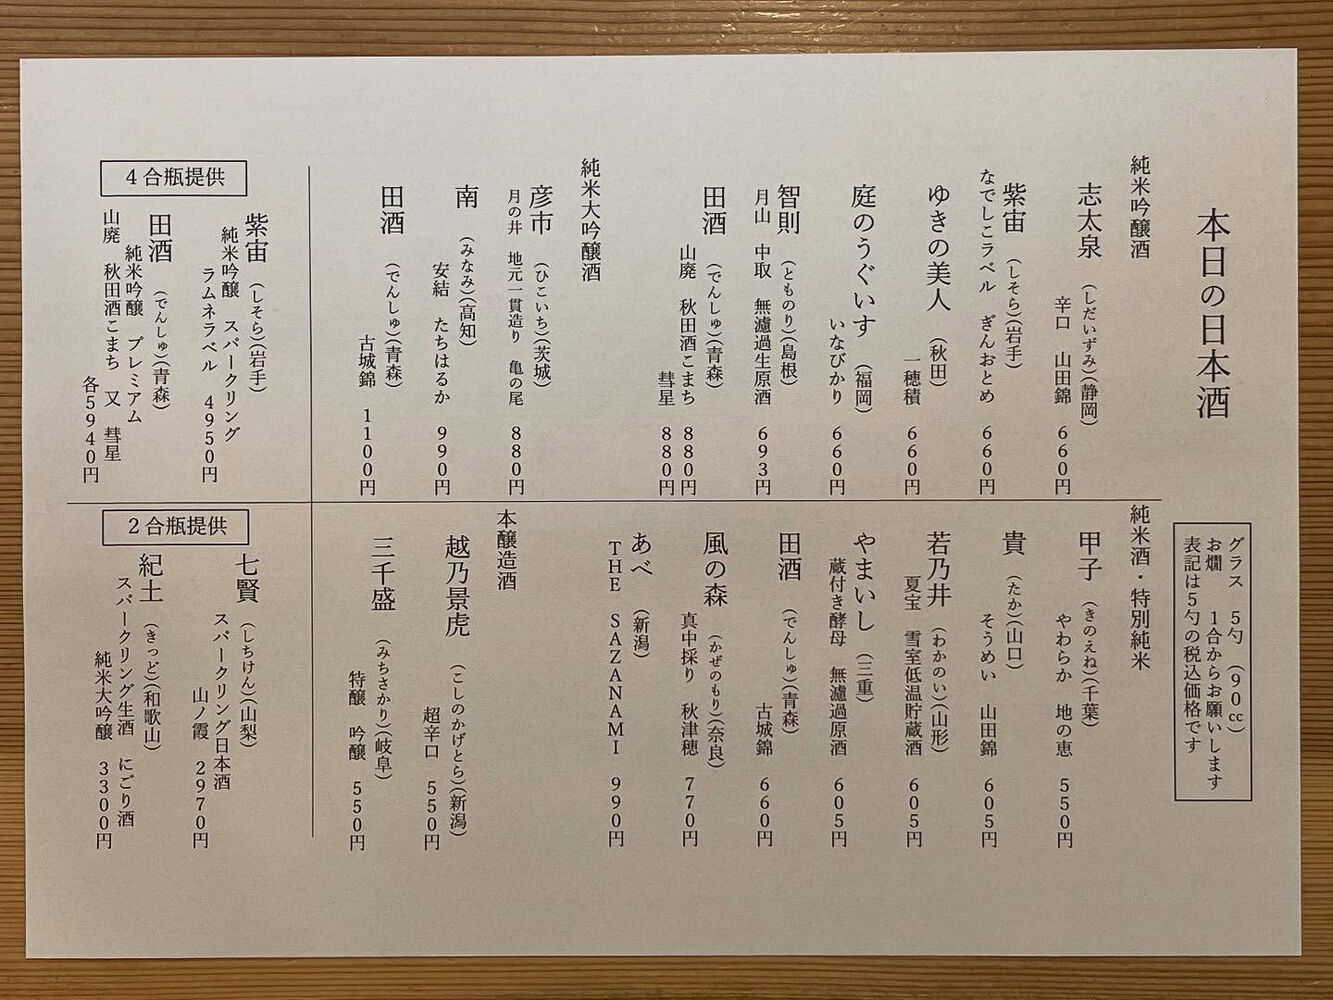 本日の日本酒
グラス 5勺 (90cc)
お燗 1合からお願いします
表記は5勺の税込価格です
純米吟醸酒
志太泉 (しだいずみ)(静岡)
辛口 山田錦 660円
紫宙 (しそら)(岩手)
なでしこラベル ぎんおとめ 660円
ゆきの美人 (秋田)
一穂積 660円
庭のうぐいす (福岡)
いなびかり 660円
智則 (とものり)(島根)
月山 中取 無濾過生原酒 693円
田酒 (でんしゅ)(青森)
山廃 秋田酒こまち 880円
彗星 880円
純米大吟醸酒
彦市 (ひこいち)(茨城)
月の井 地元一貫造り 亀の尾 880円
南 (みなみ)(高知)
安結 たちはるか 990円
田酒 (でんしゅ)(青森)
古城錦 1100円
純米酒・特別純米
甲子 (きのえね)(千葉)
やわらか 地の恵 550円
貴 (たか)(山口)
そうめい 山田錦 605円
若乃井 (わかのい)(山形)
夏宝 雪室低温貯蔵酒 605円
やまいし (三重)
蔵付き酵母 無濾過原酒 605円
田酒 (でんしゅ)(青森)
古城錦 660円
風の森 (かぜのもり)(奈良)
真中採り 秋津穂 770円
あべ (新潟)
THE SAZANAMI 990円
本醸造酒
越乃景虎 (こしのかげとら)(新潟)
超辛口 550円
三千盛 (みちさかり)(岐阜)
特醸 吟醸 550円
4合瓶提供
紫宙 (しそら)(岩手)
純米吟醸 スパークリング
ラムネラベル 4950円
田酒 (でんしゅ)(青森)
純米吟醸 プレミアム
山廃 秋田酒こまち 又 彗星
各5940円
2合瓶提供
七賢 (しちけん)(山梨)
スパークリング日本酒
山ノ霞 2970円
紀土 (きっど)(和歌山)
スパークリング生酒 にごり酒
純米大吟醸 3300円